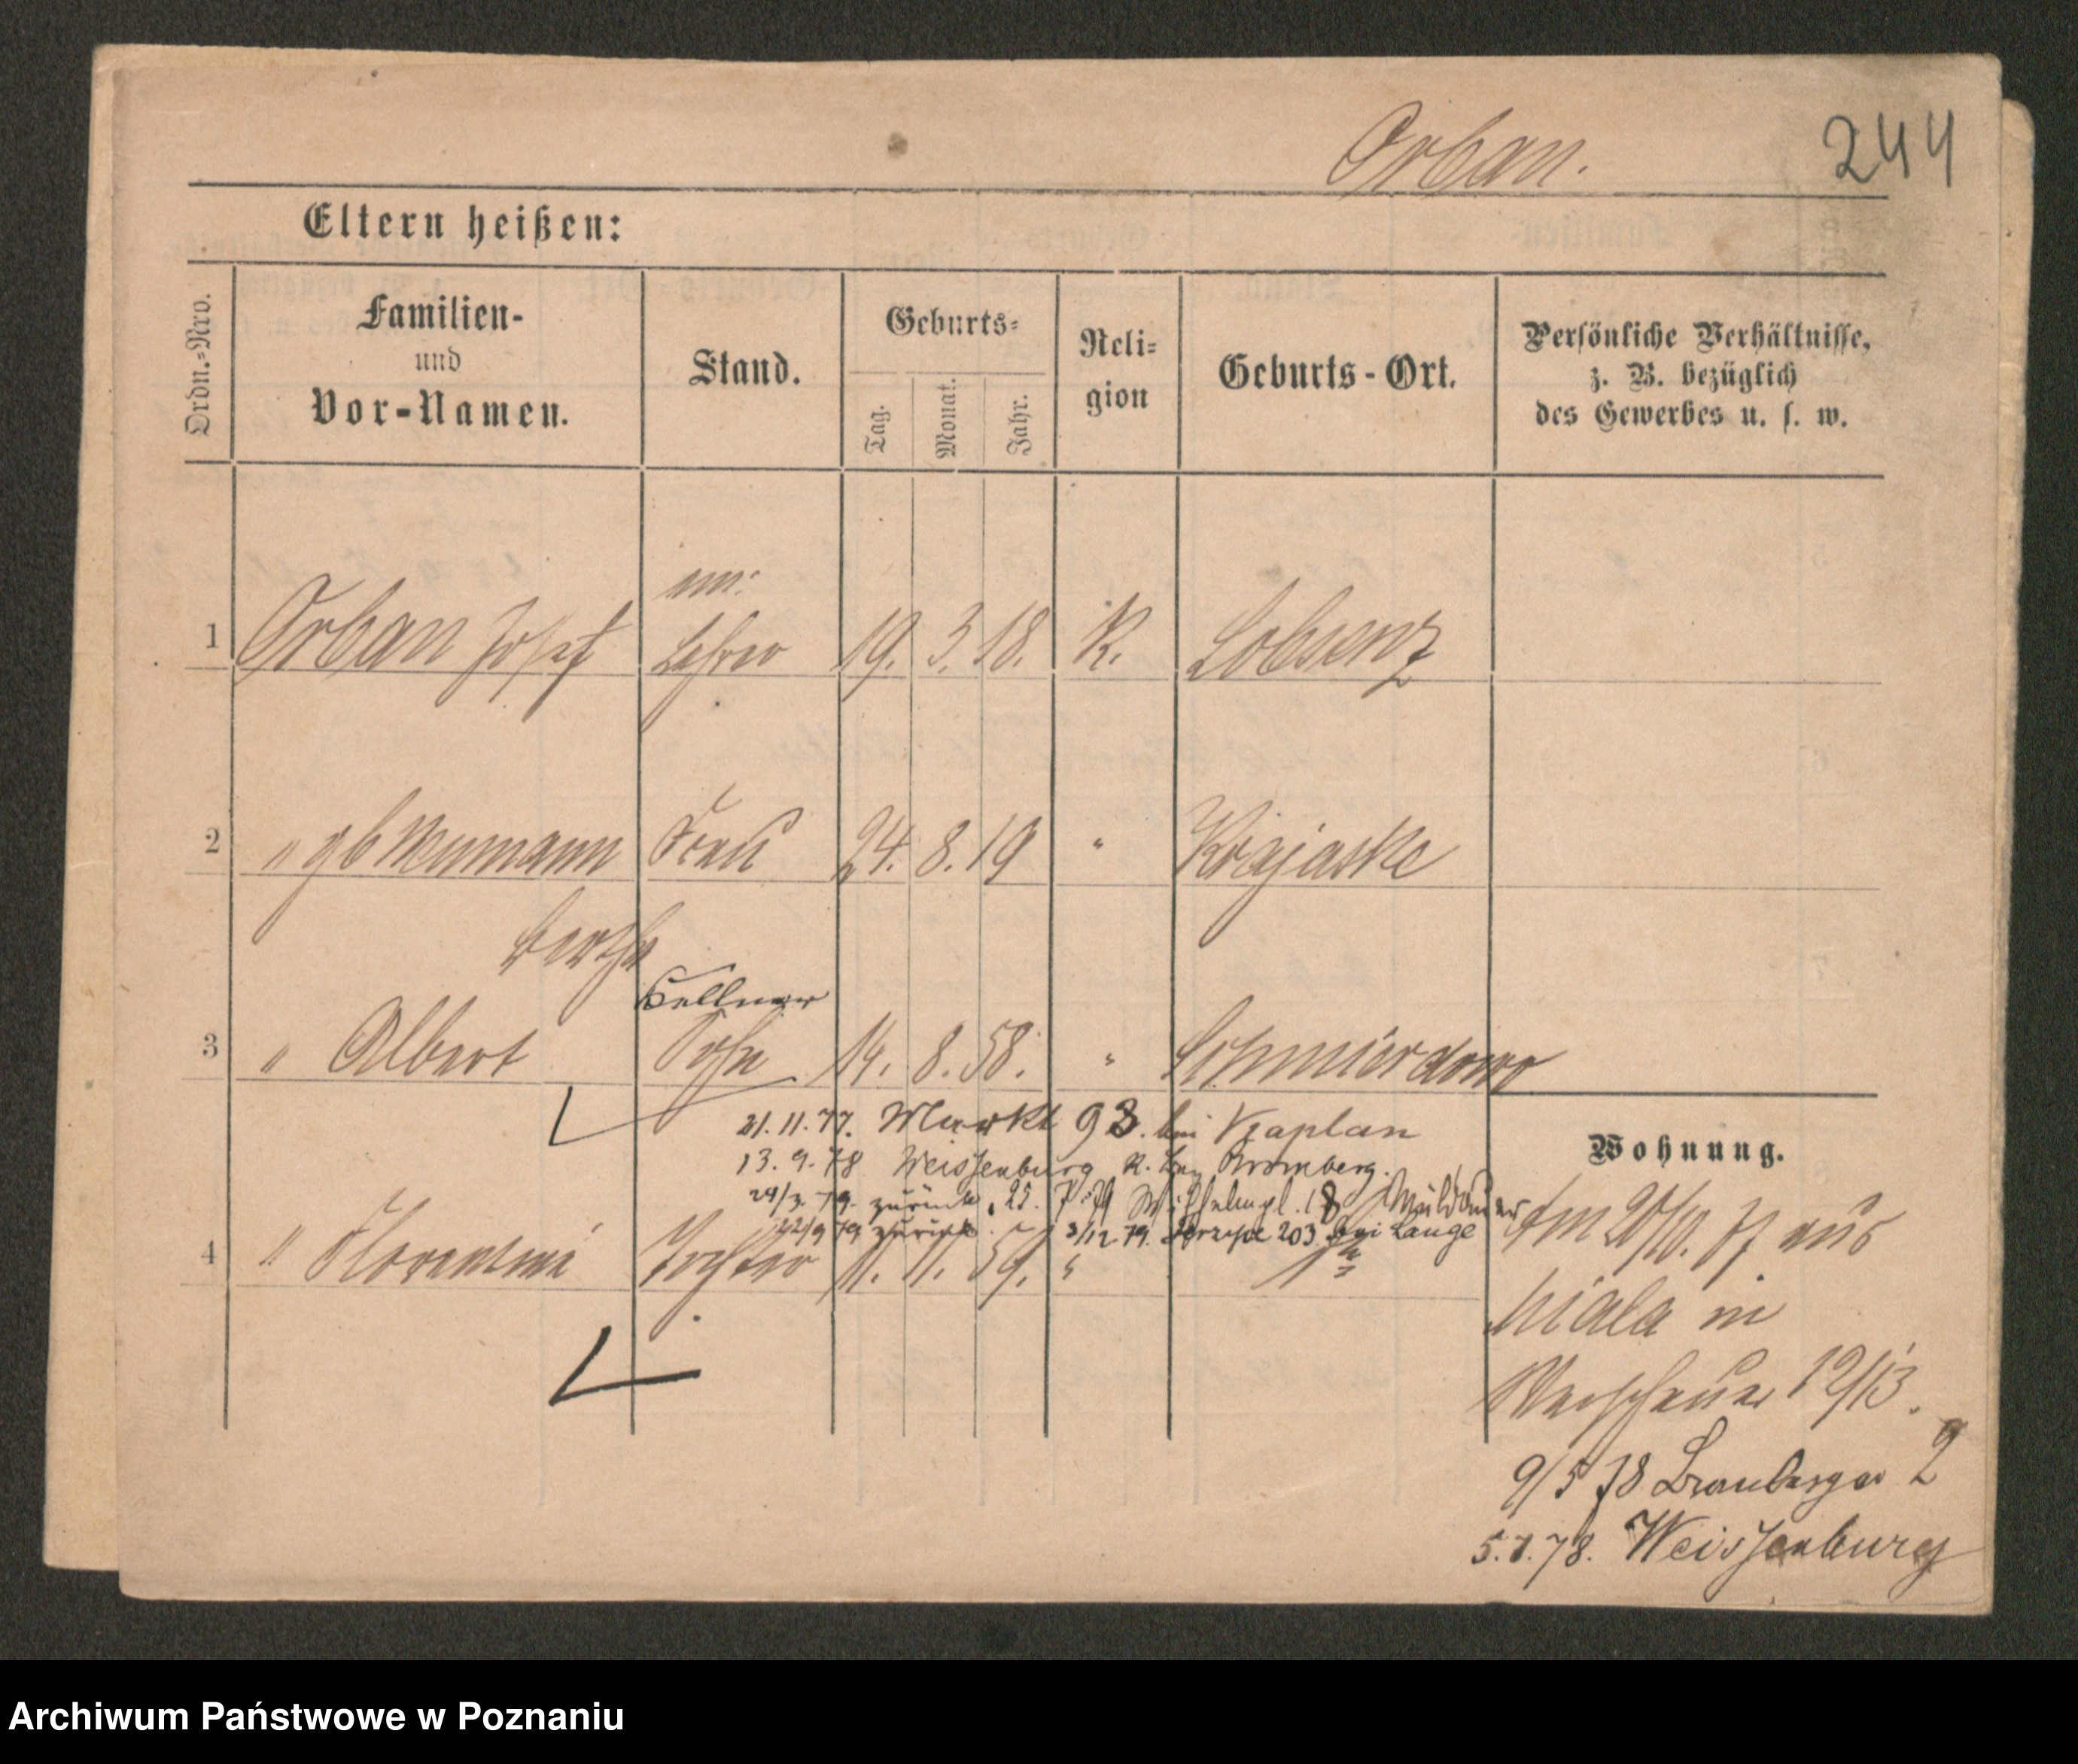 Orban.
244
Eltern heißen:
Ordn.-Nro.
Familien-
und
Vor-Namen.
Stand.
Geburts-
Tag.
Monat.
Jahr.
Reli-
gion
Geburts-Ort.
Persönliche Verhältnisse,
z. B. bezüglich
des Gewerbes u. s. w.
1 Orban Josef Lehrer 19. 3. 18. K. Lobsenz
2 " gb Neumann Frau 24. 8. 19 " Krajaske
Bertha
Kellner
3 " Albert Sohn 14. 8. 58. " Schmierdowo
21. 11. 77. Markt 93. bei Kaplan
13. 9. 78 Weissenburg Bromberg.
24/3. 79. zurück. 25. 7. 79 18
22/9 79 zurück. 3/12 79. 203 bei Lange
4 " Tochter 11. 11. 59. "
Wohnung.
Am 20/10. 77 aus
in
12/13.
9/5 78 2
5. 7. 78. Weissenburg
Archiwum Państwowe w Poznaniu